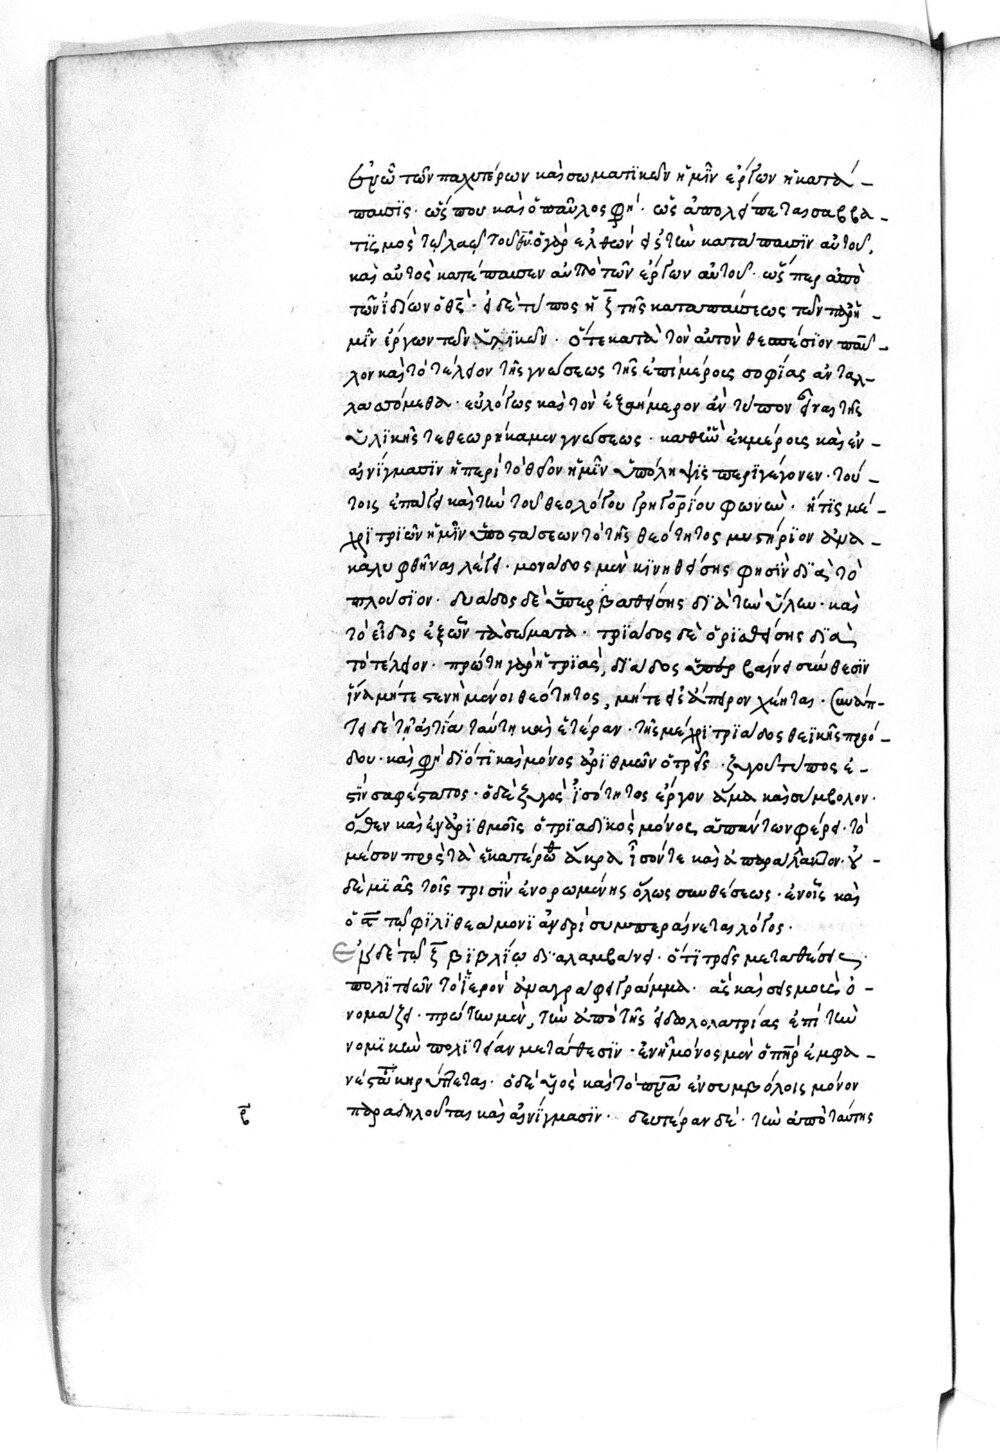 ἐξ ὧν τῶν παχυτέρων καὶ σωματϊκῶν ἡμῖν ἔργων ἡ κατά-
παυσϊς· ὥς που καὶ ὁ παῦλος φη· ὡς ἀπολείπεται σαββα-
τϊσμὸς τῷ λαῷ τοῦ θῦ· ὁ γὰρ ἐλθὼν εἰς τὴν κατάπαυσϊν αὐτοῦ,
καὶ αὐτὸς κατέπαυσεν ἀπὸ τῶν ἔργων αὐτοῦ· ὥσπερ ἀπὸ
τῶν ἰδίων ὁ θς· εἰ δὲ τύπος ἡ ξ τῆς καταπαύσεως τῶν παρ' ἡ-
μῖν ἔργων τῶν ὑλϊκῶν· ὅτε κατὰ τὸν αὐτὸν θεσπέσϊον παῦ-
λον καὶ τὸ τέλειον τῆς γνώσεως τῆς ἐπιμέρους σοφίας ἀνταλ-
λαττόμεθα· εὐλόγως καὶ τὸν ἑξαήμερον ἀντίτυπον εἶναι τῆς
ὑλϊκῆς τεθεωρήκαμεν γνώσεως· καθ' ἣν ἐκ μέρους καὶ ἐν
αἰνίγμασϊν ἡ περὶ τὸ θεῖον ἡμῖν ὑπόληψϊς περϊγέγονεν· τού-
τοις ἐπάγει καὶ τὴν τοῦ θεολόγου γρηγορΐου φωνὴν· ἥτϊς μέ-
χρϊ τριῶν ἡμῖν ὑποστάσεων τὸ τῆς θεότητος μυστήρϊον ἀνα-
καλυφθῆναι λέγει· μονάδος μὲν κϊνηθείσης φησὶν δϊὰ τὸ
πλούσϊον· δυάδος δὲ ὑπερβαθείσης δϊὰ τὴν ὕλην· καὶ
τὸ εἶδος ἐξ ὧν τὰ σώματα· τρϊάδος δὲ ὁρϊσθείσης δϊὰ
τὸ τέλειον· πρώτη γὰρ ἡ τρϊὰς, δϊάδος ὑπερβαίνει σύνθεσϊν
ἵνα μήτε στενὴ μένοι θεότητος, μήτε εἰς ἄπειρον χέηται· συνάπ-
τει δὲ τῇ αἰτίᾳ ταύτῃ καὶ ἑτέραν· τῆς μέχρϊ τρϊάδος θεϊκῆς προό-
δου· καὶ φη δϊότϊ καὶ μόνος ἀρϊθμῶν ὁ τρεῖς· ζυγοῦ τύπος ἐ-
στὶν σαφέστατος· ὁ δὲ ζυγὸς ἰσότητος ἔργον ἅμα καὶ σύμβολον·
ὅθεν καὶ ἐν ἀρϊθμοῖς ὁ τρϊαδϊκὸς μόνος ἁπάντων φέρει· τὸ
μέσον πρὸς τὰ ἑκατέρωθεν ἄκρα ἶσόν τε καὶ ἀπαράλλακτον· οὐ-
δεμϊᾶς τοῖς τρισὶν ἐνορωμένης ὅλως συνθέσεως· ἐν οἷς καὶ
ὁ α τῷ φϊλϊθεάμονϊ ἀνδρὶ συμπεραίνεται λόγος·
Ἐν δὲ τῷ ξ βϊβλίῳ δϊαλαμβάνει· ὅτϊ τρεῖς μεταθέσεις
πολϊτειῶν τὸ ἱερὸν ἀναγράφει γράμμα· ἃς καὶ σεισμοὺς ὀ-
νομάζει· πρώτην μὲν, τὴν ἀπὸ τῆς εἰδωλολατρίας ἐπὶ τὴν
νομϊκὴν πολϊτείαν μετάθεσϊν· ἐν ᾗ μόνος μὲν ὁ πηρ ἐμφα-
νέστερον κηρύττεται· ὁ δὲ υἱὸς καὶ τὸ πνα ἐν συμβόλοις μόνον
παραδηλοῦται καὶ αἰνΐγμασϊν· δευτέραν δὲ· τὴν ἀπὸ ταύτης